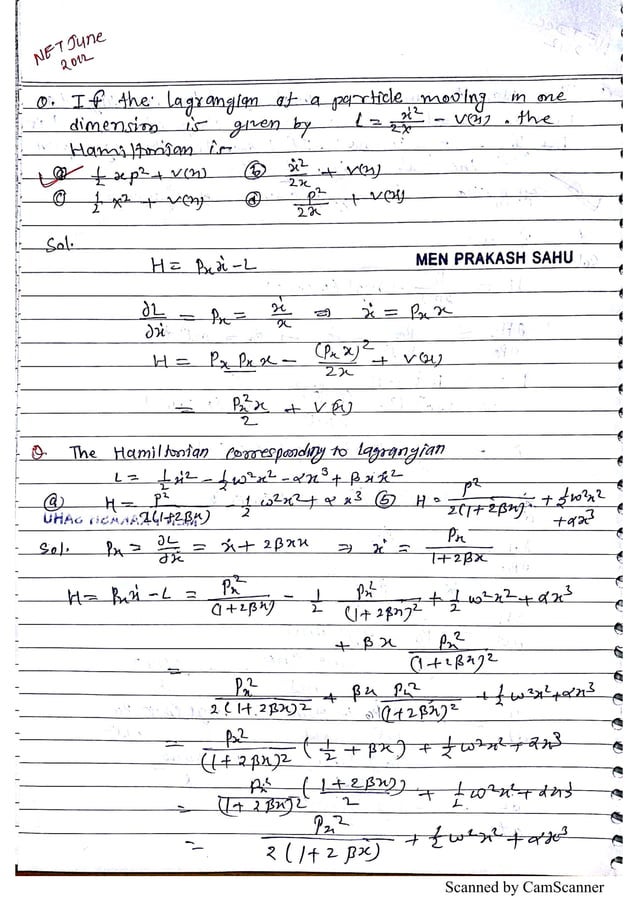 NET June
2012
Q. If the lagrangian of a particle moving in one
dimension is given by L = ẋ²/2x - V(x). the
Hamiltonian is
(a) ½ xp² + V(x) (b) ẋ²/2x + V(x)
(c) ½ x² + V(x) (d) p²/2x + V(x)
Sol.
H = Pₓẋ - L
MEN PRAKASH SAHU
∂L/∂ẋ = Pₓ = ẋ/x ⇒ ẋ = Pₓ x
H = Pₓ Pₓ x - (Pₓ x)²/2x + V(x)
= Pₓ²x/2 + V(x)
Q. The Hamiltonian corresponding to lagrangian
L = ½ẋ² - ½ω²x² - αx³ + βxẋ²
(a) H = P²/2(1+2βx) - ½ω²x² + αx³ (b) H = P²/2(1+2βx) + ½ω²x²
+αx³
Sol. Pₓ = ∂L/∂ẋ = ẋ + 2βxẋ ⇒ ẋ = Pₓ/1+2βx
H = Pₓẋ - L = Pₓ²/(1+2βx) - ½ Pₓ²/(1+2βx)² + ½ω²x² + αx³
+ βx Pₓ²/(1+2βx)²
= Pₓ²/2(1+2βx)² + βx Pₓ²/(1+2βx)² + ½ω²x² + αx³
= Pₓ²/(1+2βx)² (½ + βx) + ½ω²x² + αx³
= Pₓ²/(1+2βx)² (1+2βx)/2 + ½ω²x² + αx³
= Pₓ²/2(1+2βx) + ½ω²x² + αx³
Scanned by CamScanner